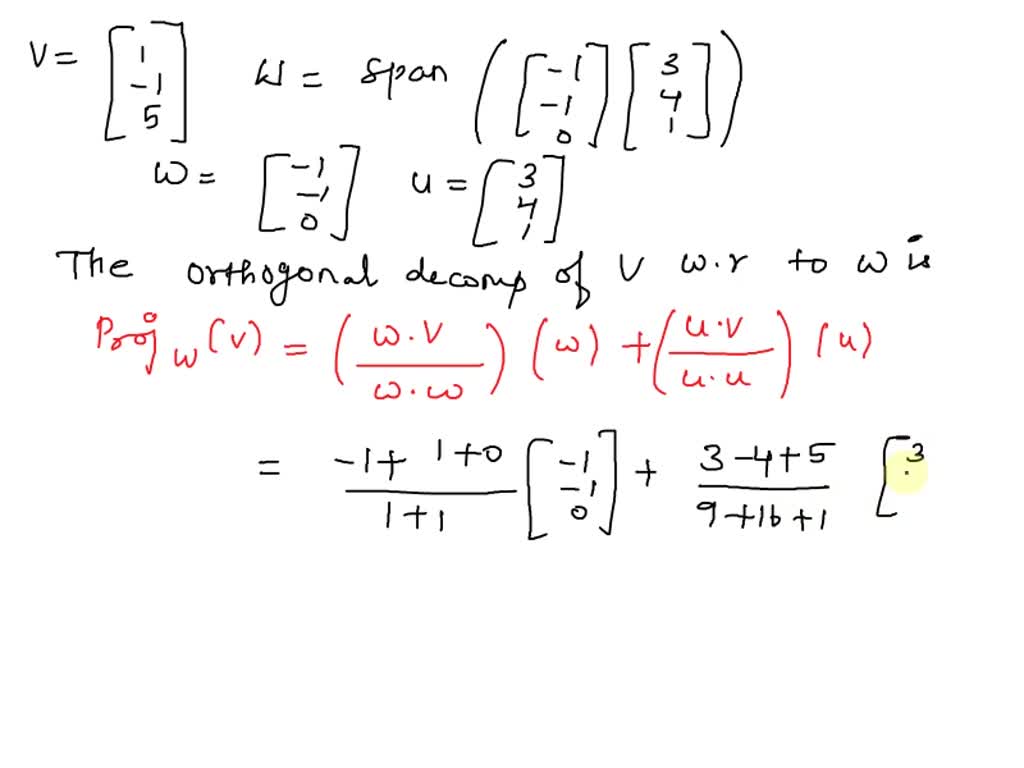 V = [1 -1 5] W = span ([-1 -1 0] [3 4 1])
w = [-1 -1 0] u = [3 4 1]
The orthogonal decomp of V w.r to w is
Proj w (v) = (w.v / w.w) (w) + (u.v / u.u) (u)
= -1+ 1+0 / 1+1 [-1 -1 0] + 3-4+5 / 9+16+1 [3